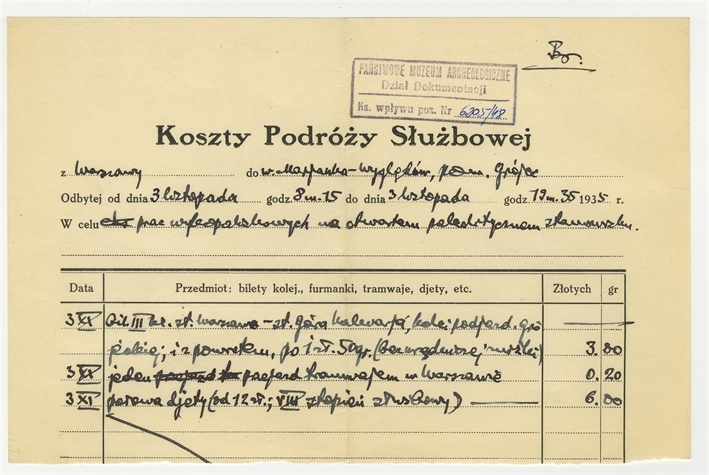 By.
PAŃSTWOWE MUZEUM ARCHEOLOGICZNE
Dział Dokumentacji
Ks. wpływu poz. Nr 6205/48
Koszty Podróży Służbowej
z Warszawy do w. Marjanka-Wyględów, pow. Grójec
Odbytej od dnia 3 listopada godz. 8 m. 15 do dnia 3 listopada godz. 19 m. 35 1935 r.
W celu prac wykopaliskowych na otwartem paleolitycznem stanowisku.
Data Przedmiot: bilety kolej., furmanki, tramwaje, djety, etc. Złotych gr
3 XI Bil. III kl. st. Warszawa – st. Góra Kalwarja, kolej podjazd. gró
jecką; i z powrotem, po 1 zł. 50 gr. (bez urzędniczej zniżki) 3. 00
3 XI jeden przejazd tramwajem w Warszawie 0. 20
3 XI połowa djety (od 12 zł.; VIII stopień służbowy) 6. 00